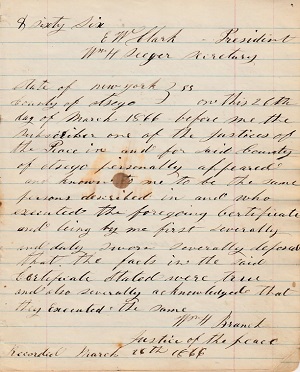 & sixty six
E W Clark - President
Wm H Seeger Secretary
State of new york } ss
County of otsego on this 26th
day of March 1866 before me the
subscriber one of the justices of
the Peace in and for said County
of otsego personally appeared
and known to me to be the same
persons described in and who
executed the foregoing Certificate
and being by me first severally
and duly sworn severally deposed
that the facts in the said
Certificate Stated were true
and also severally acknowledged that
they executed the same
Wm H Branch
Justice of the peace
Recorded March 28th 1866